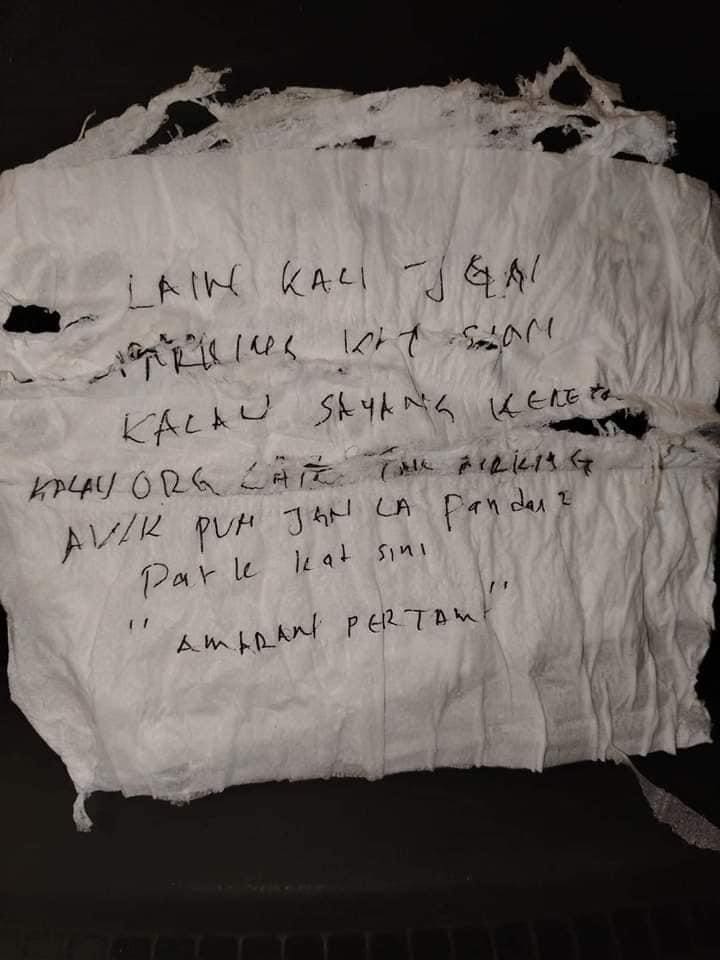 LAIN KALI JGN
PARKING KAT SINI
KALAU SAYANG KERETA
KALAU ORG LAIN TAK PARKING
AWAK PUN JGN LA pandai2
Park kat sini
"AMARAN PERTAMA"